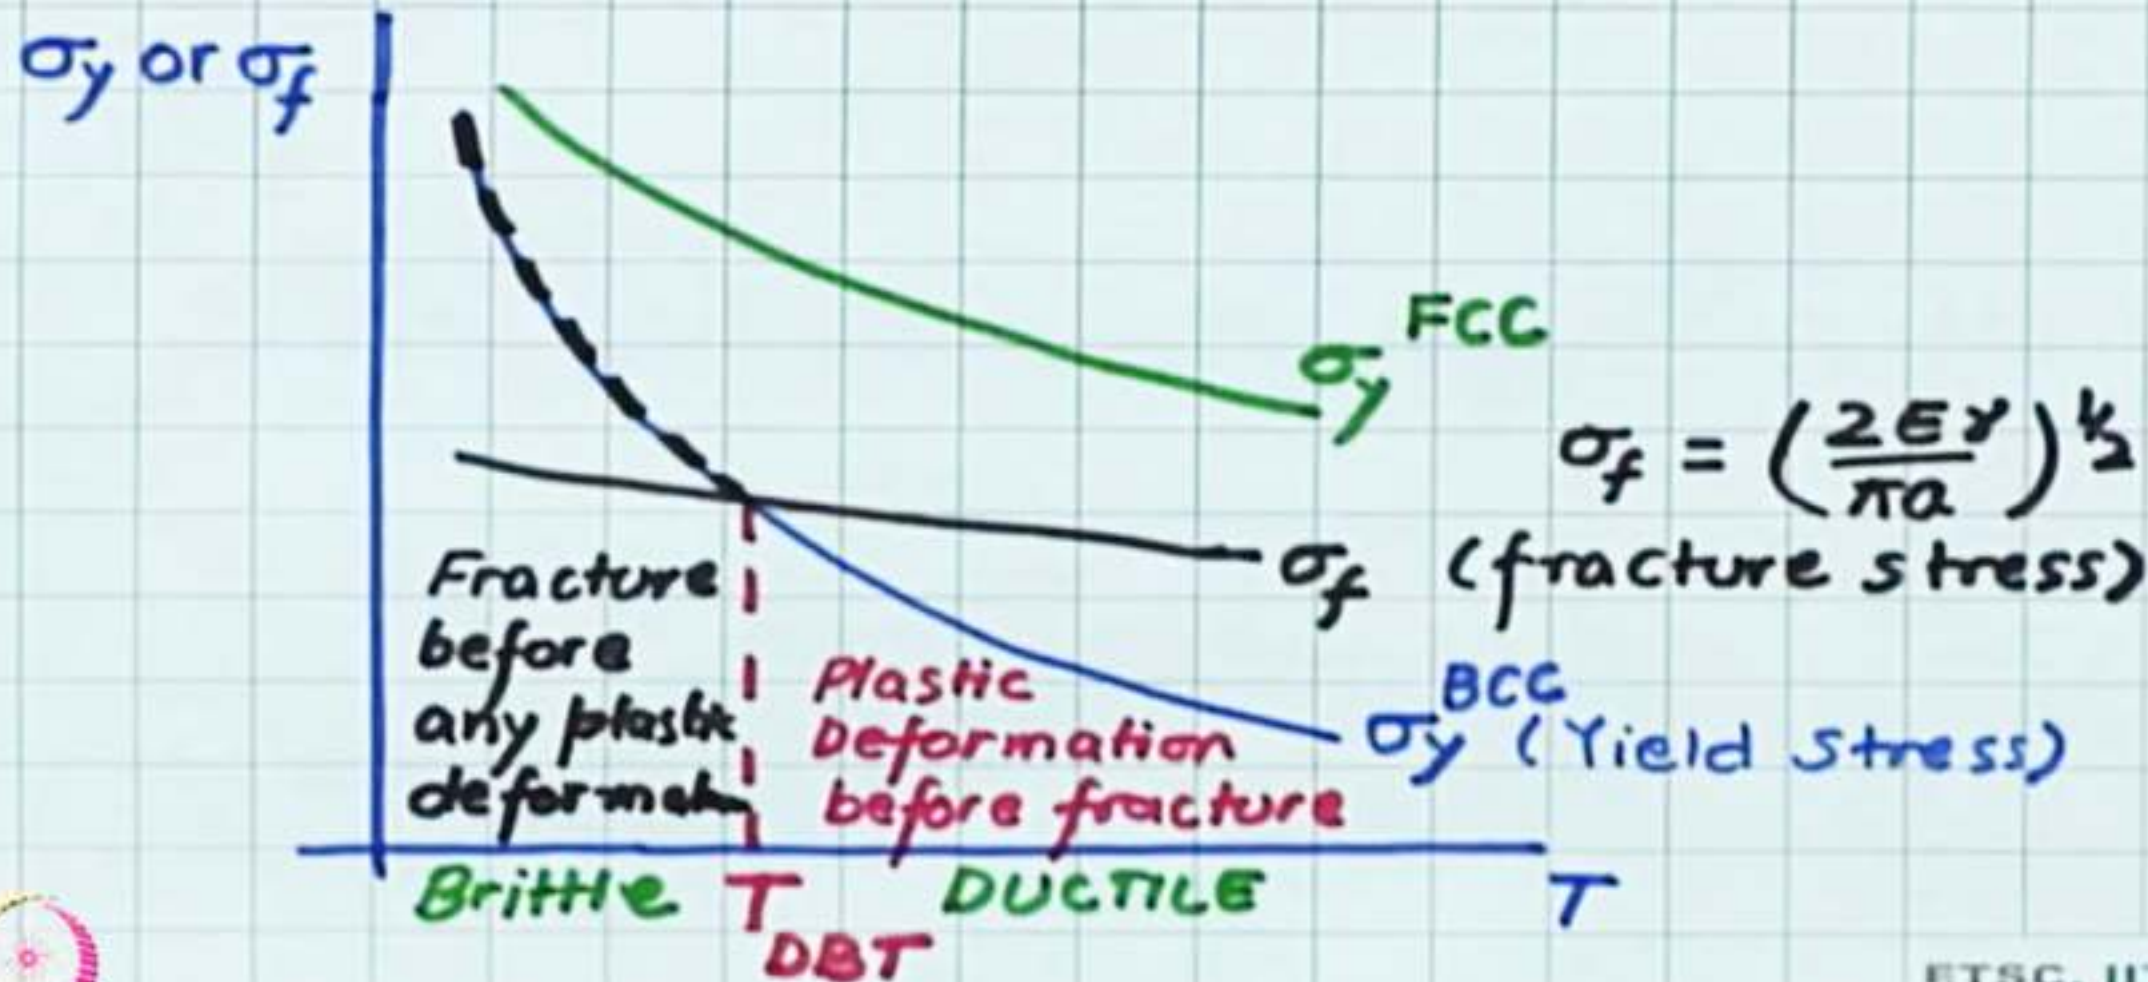 σy or σf
σy FCC
σf = (2Eγ/πa)^½
σf (fracture stress)
σy BCC (Yield stress)
Fracture
before
any plastic
Plastic
Deformation
before fracture
Brittle T DBT DUCTILE T